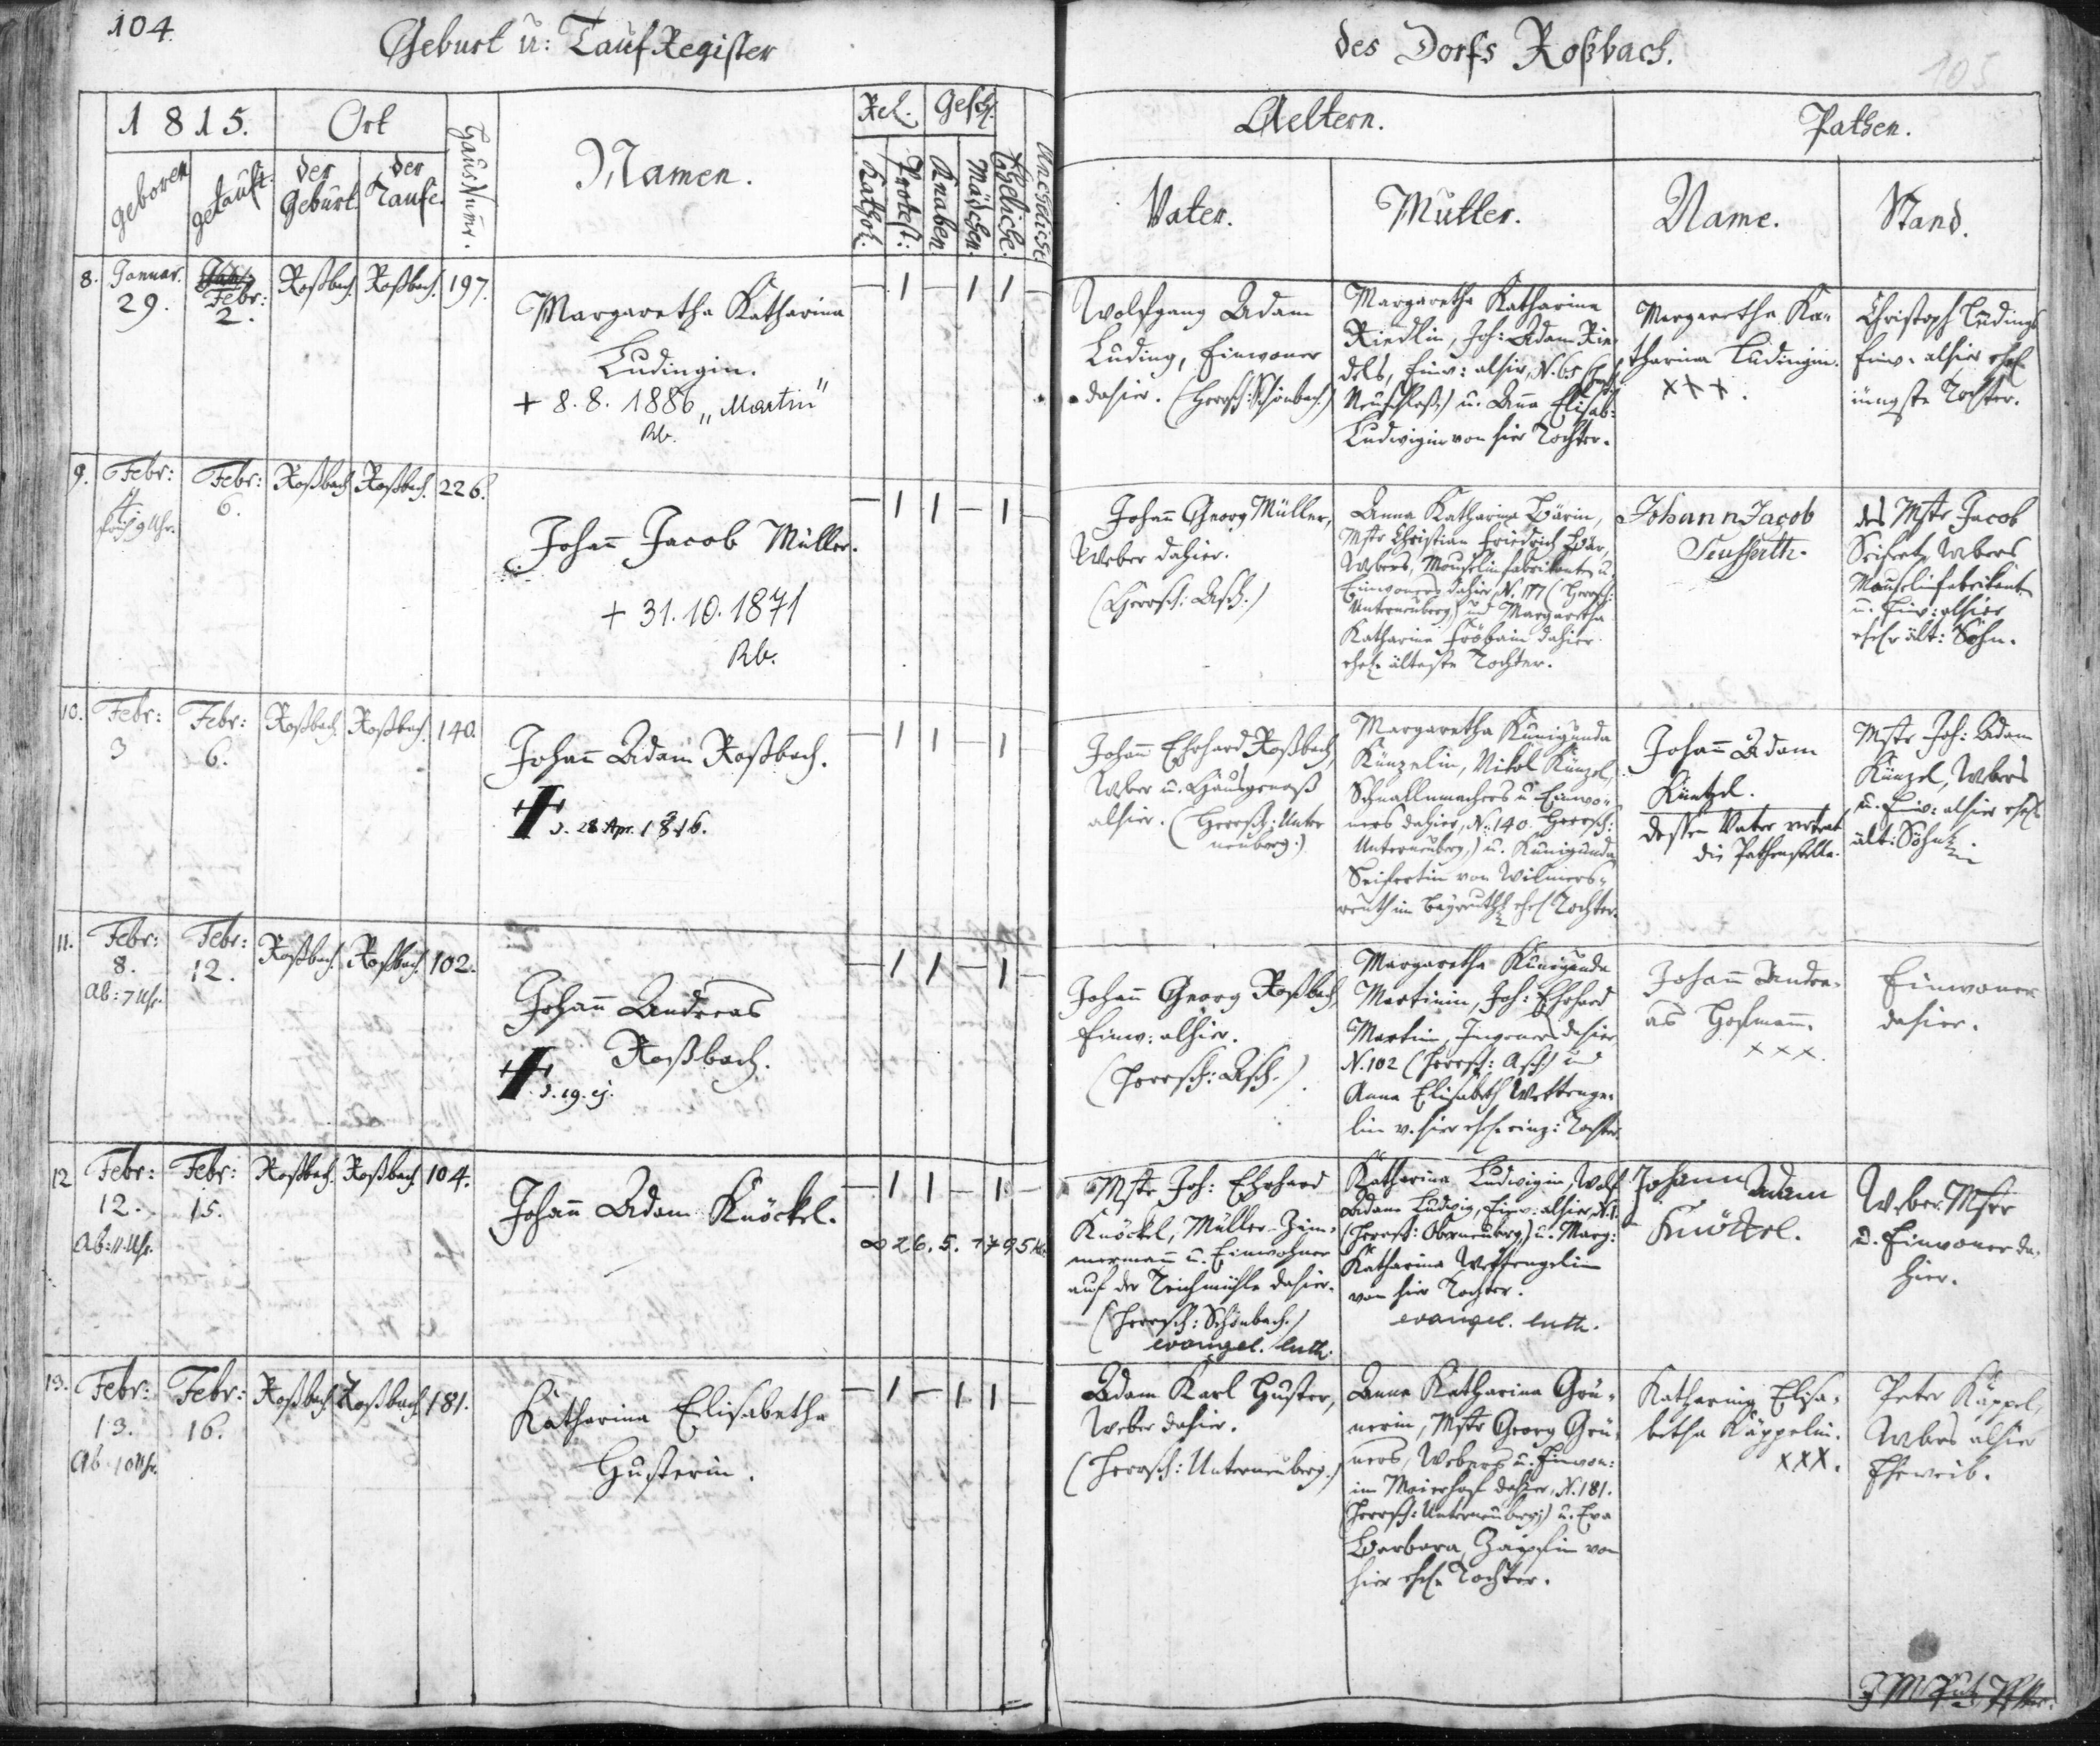 104.
Geburt u: Tauf Register
des Dorfs Roßbach.
105
1815.
Ort
Haus Numr.
Namen.
Rel.
Gesch.
Eheliche.
Uneheliche
geboren
getauft.
der Geburt.
der Taufe.
Kathol.
Protest:
Knaben
Mädchen.
Aeltern.
Pathen.
Vater.
Mutter.
Name.
Stand.
8. Januar. 29.
Febr: 2.
Roßbach. Roßbach. 197.
Margaretha Katharina
Ludingin.
+ 8. 8. 1886 „Martin"
Rb.
— 1 — 1 1 —
Wolfgang Adam
Luding, Einwoner
dahier. (Herrsch: Schönbach.)
Margaretha Katharina
Riedlin, Joh: Adam Rie-
dels, Einw: alhier, N. 65
Neuschloß) u. Anna Elisab:
Ludwigin von hier Tochter.
Margaretha Ka-
tharina Ludingin.
xxx.
Christoph Ludings
Einw. alhier ehel
jüngste Tochter.
9. Febr: 4. früh 9 Uhr.
Febr: 6.
Roßbach Roßbach. 226.
Johañ Jacob Müller.
+ 31. 10. 1871
Rb.
— 1 1 — 1
Johañ Georg Müller,
Weber dahier.
(Herrsch: Asch.)
Anna Katharina Bärin,
Mstr Christian Friedrich Bär,
Webers, Mouselinfabrikanten u.
Einwoners dahier, N. 177 (Herrsch:
Unterneuberg) und Margaretha
Katharina Fröbain dahier
ehel. älteste Tochter.
Johann Jacob
des Mstr Jacob
Seifert, Webers
Mouselinfabrikant
u. Einw: alhier
ehel. ält: Sohn.
10. Febr: 3
Febr: 6.
Roßbach Roßbach. 140.
Johañ Adam Roßbach.
d. 28 Apr. 1816.
— 1 1 — 1
Johañ Ehrhard Roßbach,
Weber u. Hausgenoß
alhier. (Herrsch: Unter
neuberg.)
Margaretha Kunigunda
Künzelin, Nikol Künzel,
Schnallnmachers u. Einwo-
ners dahier, N. 140. Herrsch:
Unterneuberg,) u. Kunigunda
Seifertin von Wilmers-
reuth im Bayreuth. ehel Tochter.
Johañ Adam
Küntzel.
dessen Vater vertrat
die Pathenstelle.
Mstr Joh: Adam
Künzel, Webers
u. Einw: alhier ehel
ält: Sohn
11. Febr: 8. Ab: 7 Uhr.
Febr: 12.
Roßbach. Roßbach. 102.
Johañ Andreas
Roßbach.
d. 19. ej.
— 1 1 — 1 —
Johañ Georg Roßbach,
Einw: alhier.
(Herrsch: Asch.)
Margaretha Kunigunda
Martinin, Joh: Ehrhard
Martin, Inwoners dahier
N. 102 (Herrsch: Asch) und
Anna Elisabeth Wettenge-
lin v. hier ehel. einz: Tochter.
Johañ Andre-
as Hofmañ.
xxx.
Einwoner
dahier.
12 Febr: 12. Ab: 11 Uhr.
Febr: 15.
Roßbach. Roßbach. 104.
Johañ Adam Knöckel.
— 1 1 — 1 —
∞ 26. 5. 1795
Mstr Joh: Ehrhard
Knöckel, Müller-Zim-
mermañ u. Einwohner
auf der Teichmühle dahier.
(Herrsch: Schönbach.)
evangel. luth.
Katharina Ludwigin, Wolf
Adam Ludwig, Einw: alhier, N. 1.
(Herrsch: Oberneuberg,) u. Marg:
Katharina Wettengelin
von hier Tochter.
evangel. luth.
Johann Adam
Knöckel.
Weber Mstr
u. Einwoner da-
hier.
13. Febr: 13. Ab. 10 Uhr.
Febr: 16.
Roßbach Roßbach 181.
Katharina Elisabetha
Husterin.
— 1 — 1 1 —
Adam Karl Huster,
Weber dahier.
(Herrsch: Unterneuberg.)
Anna Katharina Grü-
nerin, Mstr Georg Grü-
ners, Webers u. Einwon:
im Maierhof dahier, N. 181.
(Herrsch: Unterneuberg;) u. Eva
Barbara Zäpfin von
hier ehel. Tochter.
Katharina Elisa-
betha Käppelin.
xxx.
Peter Käppel,
Webers alhier
Eheweib.